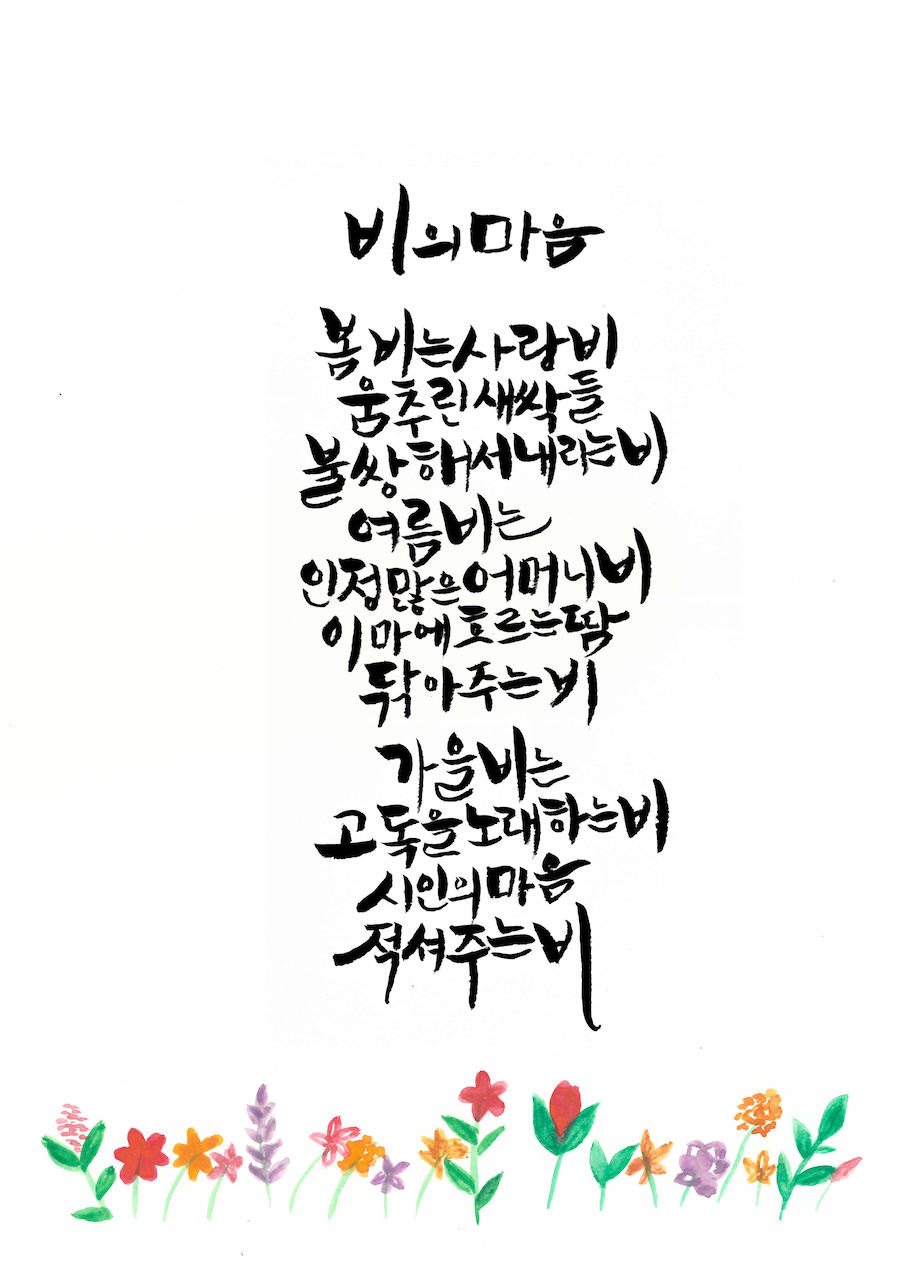 비의 마음
봄비는 사랑비
움추린 새싹들
불쌍해서 내리는 비
여름비는
인정많은 어머니비
이마에 흐르는 땀
닦아주는 비
가을비는
고독을 노래하는 비
시인의 마음
적셔주는 비